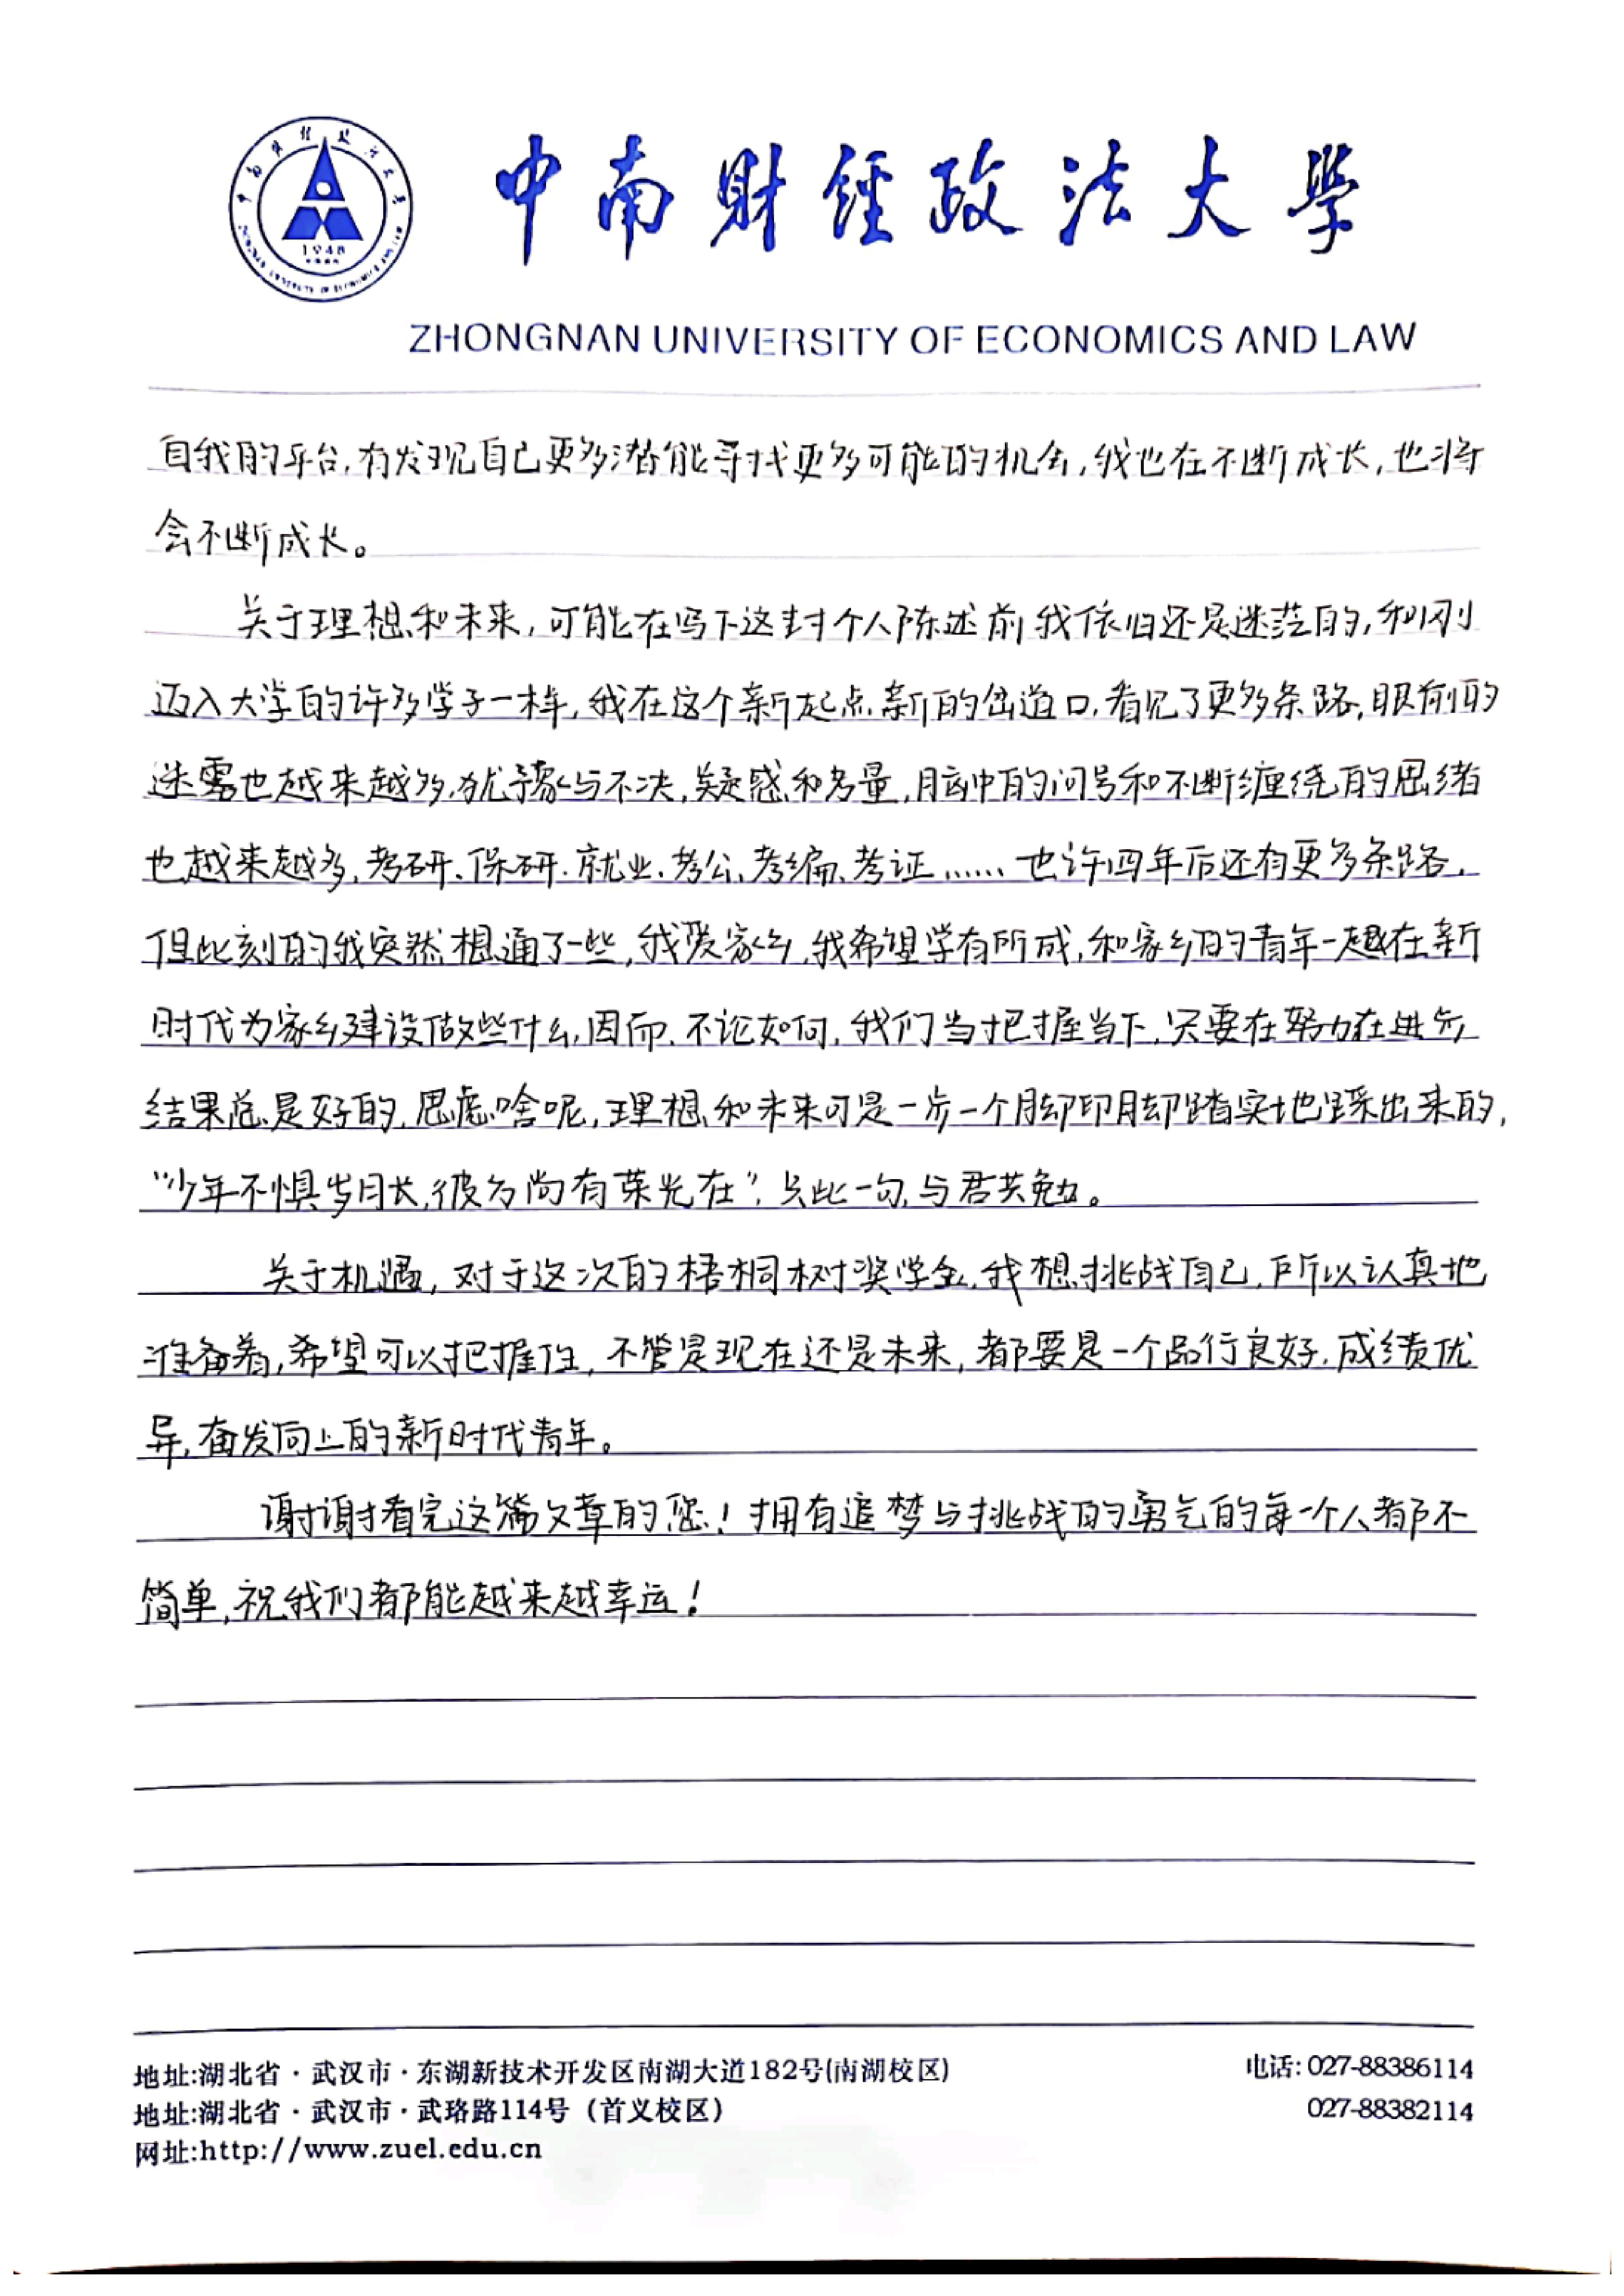 中南财经政法大学
1948
ZHONGNAN UNIVERSITY OF ECONOMICS AND LAW
自我的平台,有发现自己更多潜能寻找更多可能的机会,我也在不断成长,也将
会不断成长。
关于理想和未来,可能在写下这封个人陈述前我依旧还是迷茫的,和刚
迈入大学的许多学子一样,我在这个新起点、新的岔道口,看见了更多条路,眼前的
迷雾也越来越多,犹豫与不决,疑惑和考量,脑中的问号和不断缠绕的思绪
也越来越多,考研、保研、就业、考公、考编、考证……也许四年后还有更多条路,
但此刻的我突然想通了一些,我爱家乡,我希望学有所成,和家乡的青年一趟在新
时代为家乡建设做些什么,因而,不论如何,我们当把握当下,只要在努力在进步
结果总是好的,思虑啥呢,理想和未来可是一步一个脚印脚踏实地踩出来的,
“少年不惧岁月长,彼方尚有荣光在”,只此一句,与君共勉。
关于机遇,对于这次的梧桐树奖学金,我想挑战自己,所以认真地
准备着,希望可以把握住,不管是现在还是未来,都要是一个品行良好,成绩优
异,奋发向上的新时代青年。
谢谢看完这篇文章的您!拥有追梦与挑战的勇气的每一个人都不
简单,祝我们都能越来越幸运!
地址:湖北省·武汉市·东湖新技术开发区南湖大道182号(南湖校区)
电话:027-88386114
地址:湖北省·武汉市·武珞路114号(首义校区)
027-88382114
网址:http://www.zuel.edu.cn